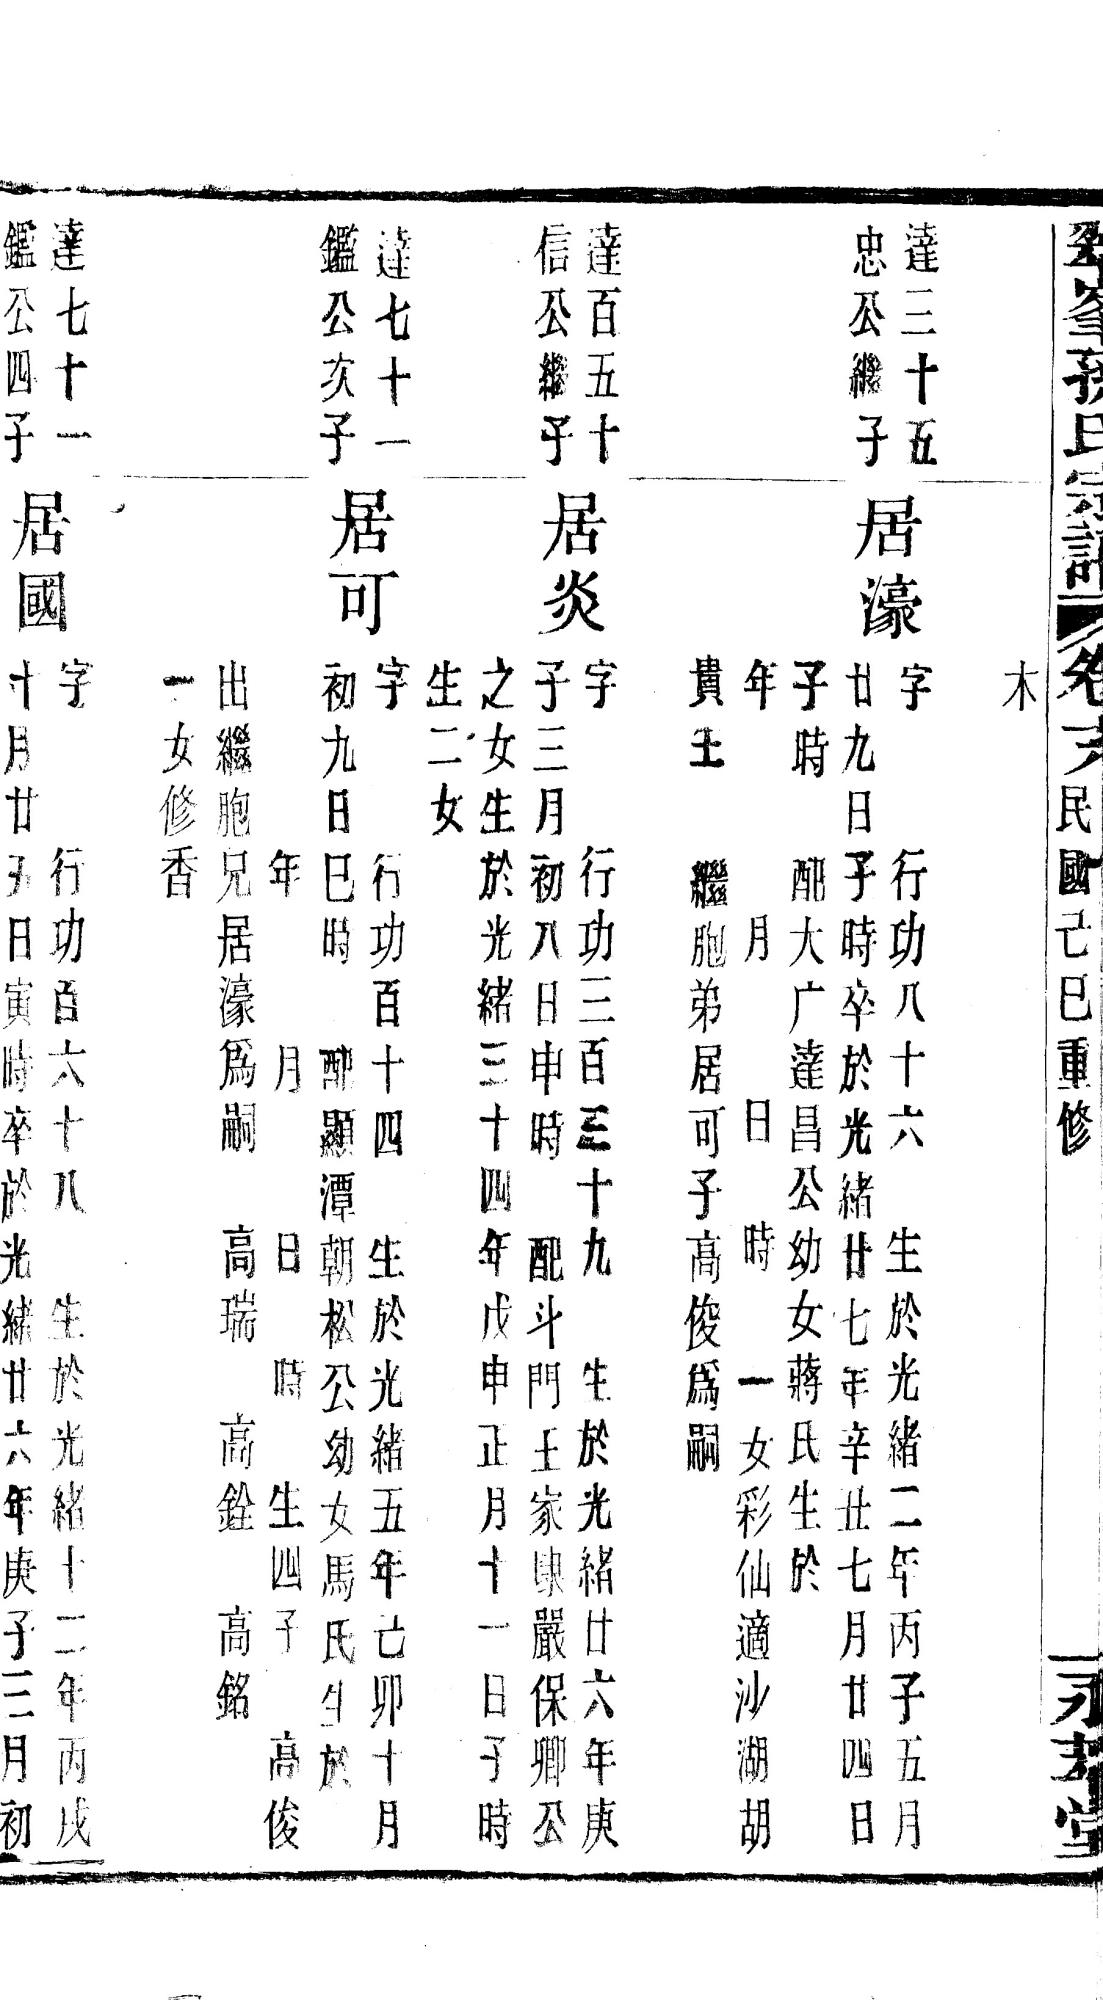 峯孫氏宗譜 卷六 民國己巳重修
堂
木
達三十五
忠公繼子
居濠
字 行功八十六 生於光緒二年丙子五月
廿九日子時卒於光緒廿七年辛丑七月廿四日
子時 配大广達昌公幼女蔣氏生於
年 月 日 時 一女彩仙適沙湖胡
貴土 繼胞弟居可子高俊爲嗣
達百五十
信公繼子
居炎
字 行功三百三十九 生於光緒廿六年庚
子三月初八日申時 配斗門王家 嚴保卿公
之女生於光緒三十四年戊申正月十一日子時
生二女
達七十一
鑑公次子
居可
字 行功百十四 生於光緒五年己卯十月
初九日巳時 配顯潭朝松公幼女馬氏生於
年 月 日 時 生四子 高俊
出繼胞兄居濠爲嗣 高瑞 高銓 高銘
一女修香
達七十一
鑑公四子
居國
字 行功百六十八 生於光緒十二年丙戌
十月廿五日寅時卒於光緒廿六年庚子三月初